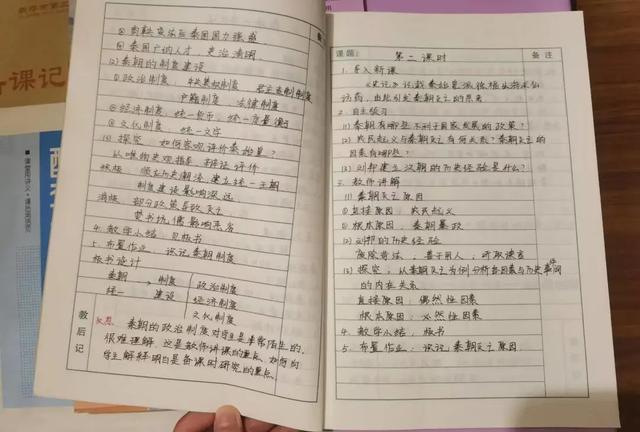 ② 商鞅变法后秦国国力强盛
③ 秦国广纳人才，吏治清明
(2) 秦朝的制度建设
① 政治制度：中央集权制度 君主专制制度
户籍制度 法律制度
② 经济制度：统一货币、统一度量衡
③ 文化制度：统一文字
(3) 探究：如何客观评价秦始皇？
从唯物史观指导，辩证评价
积极：顺应历史潮流 建立统一王朝
制度建设影响深远
消极：部分政策导致灭亡
焚书坑儒影响恶劣
4. 教学小结：见板书
5. 布置作业：识记秦朝制度
板书设计
秦朝 制度 政治制度
统一 建设 经济制度
文化制度
教后记
反思：秦朝的政治制度对学生是非常陌生的，
很难理解，这是教师讲课的重点，如何向
学生解释明白是备课时研究的重点。
课题：
第二课时
备注
1. 导入新课
《史记》记载秦始皇派徐福出海求仙
访药，由此引起秦朝灭亡的原因
2. 自主预习
(1) 秦朝有哪些不利于国家发展的政策？
(2) 农民起义与秦朝灭亡有何关系？秦朝灭亡的
因素有哪些？
(3) 刘邦建立汉朝的历史经验是什么？
3. 教师讲解
(1) 秦朝灭亡原因
① 直接原因：农民起义
② 根本原因：秦朝暴政
(2) 刘邦的历史经验
废除苛法，善于用人，听取谏言
(3) 探究：从秦朝灭亡为例分析各因素与历史事件间
的内在关系
直接原因：偶然性因素
根本原因：必然性因素
4. 教学小结：板书
5. 布置作业：识记秦朝灭亡原因
课记